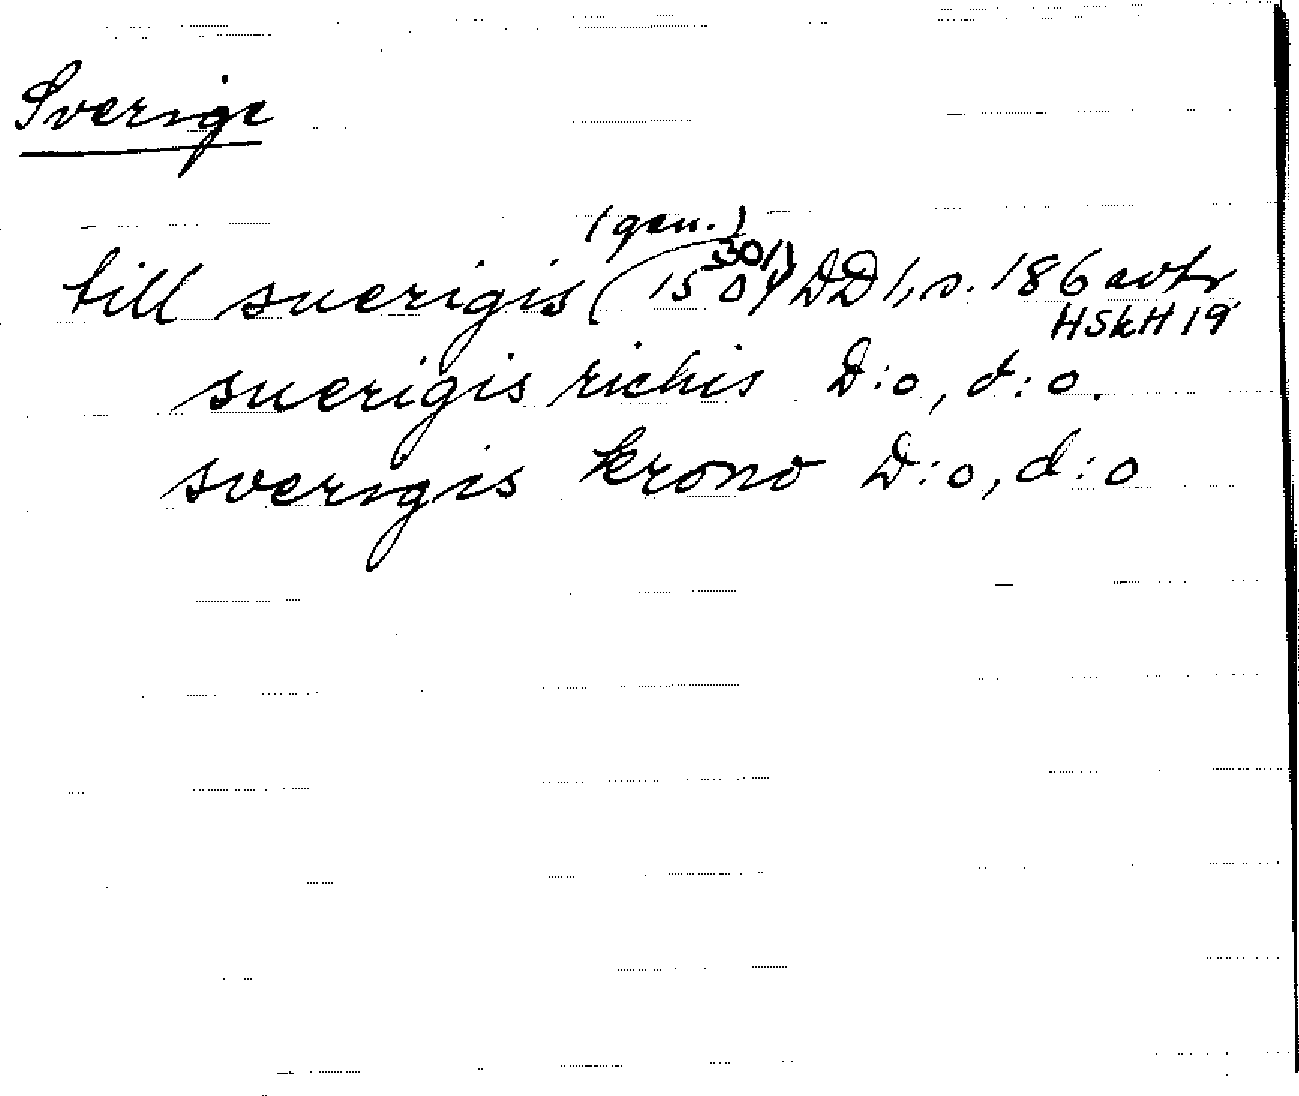 Sverige
(gen.)
till suerigis (1504 30/1) DD 1, s. 186 avtr
HSkH 19
suerigis richis D:o, d:o.
sverigis krono D:o, d:o